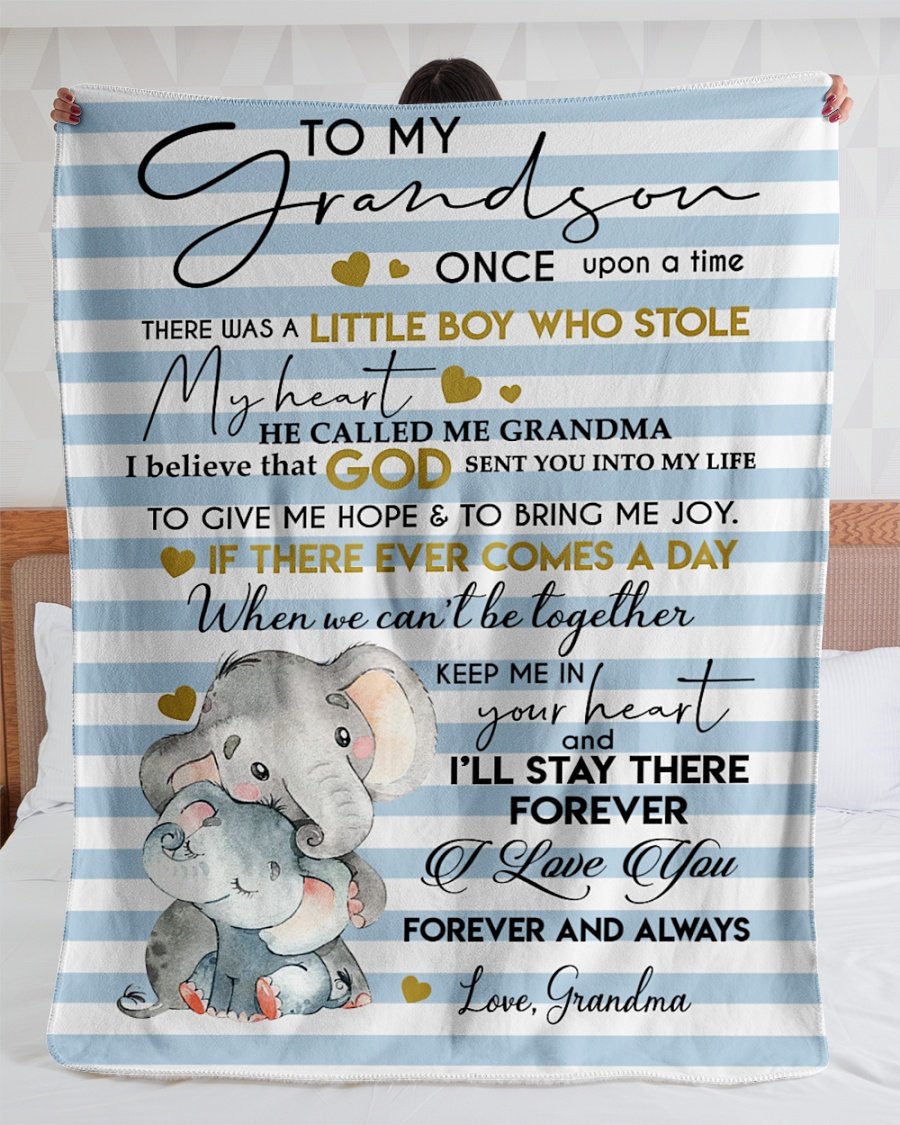 TO MY
Grandson
ONCE upon a time
THERE WAS A LITTLE BOY WHO STOLE
My heart
HE CALLED ME GRANDMA
I believe that GOD SENT YOU INTO MY LIFE
TO GIVE ME HOPE & TO BRING ME JOY.
IF THERE EVER COMES A DAY
When we can't be together
KEEP ME IN
your heart
and
I'LL STAY THERE
FOREVER
I Love You
FOREVER AND ALWAYS
Love, Grandma